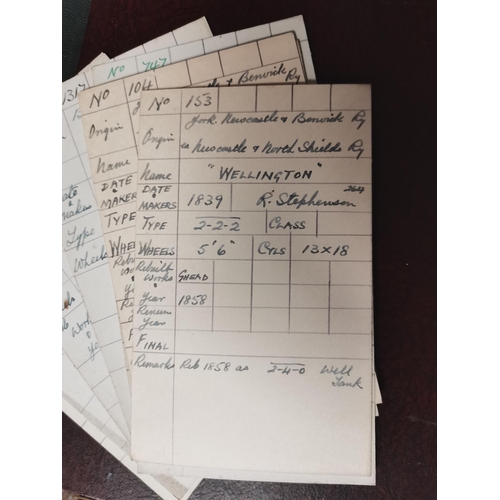 No 747
1317
No 104
Berwick Ry
Origin
Name
DATE
"MAKERS
TYPE
WHEELS
Type
Wheels
No 153
York. Newcastle & Berwick Ry
Origin ex Newcastle & North Shields Ry
Name "WELLINGTON"
DATE
"MAKERS 1839 R. Stephenson 264
TYPE 2-2-2 CLASS
WHEELS 5'6" CYLS 13 x 18
Rebuilt
Works GHEAD
" Year 1858
Renum
Year
FINAL
Remarks Reb 1858 as 2-4-0 Well
Tank